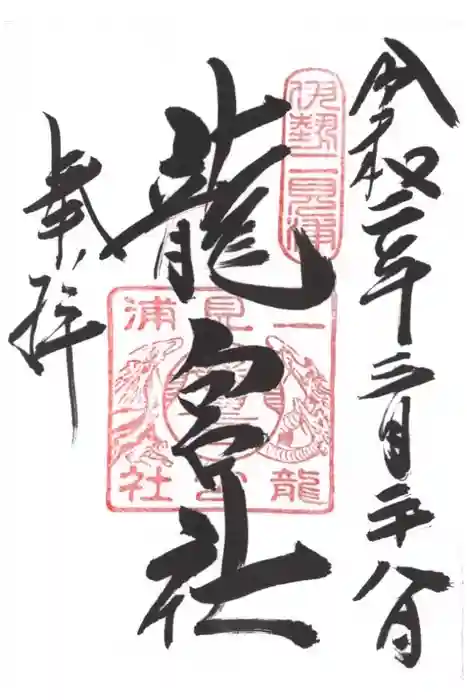 令和二年三月二十八日
伊勢二見浄
龍宮社
二見浦
龍宮社
奉拝